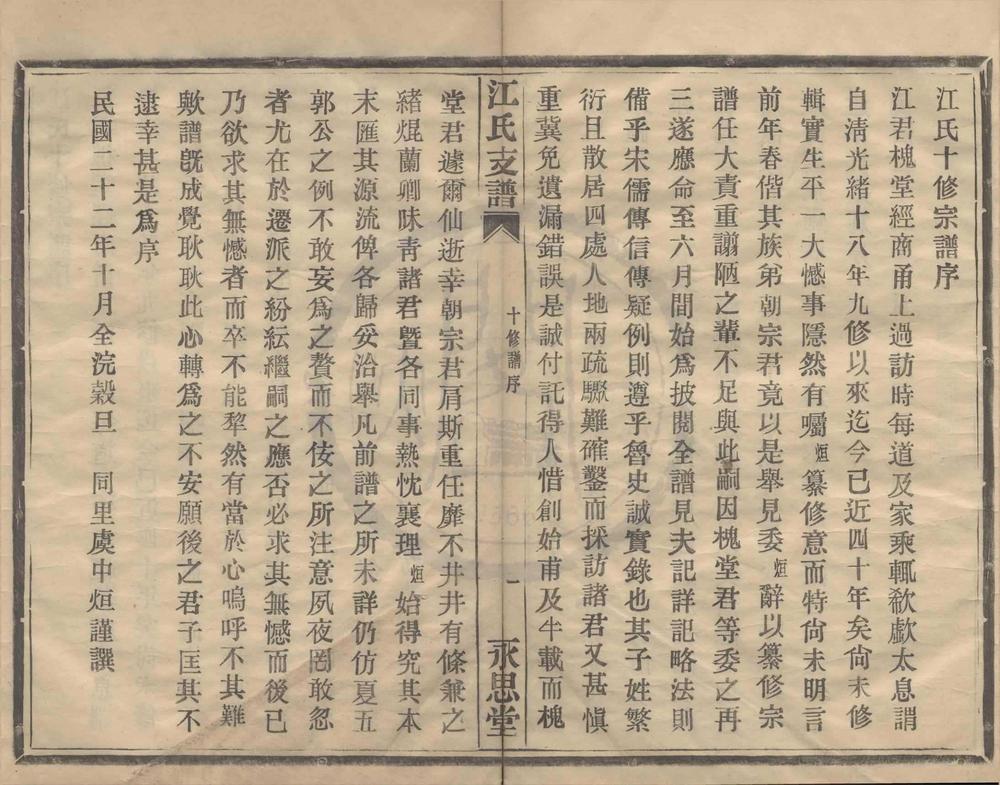 江氏十修宗譜序
江君槐堂經商甬上過訪時每道及家乘輒欷歔太息謂
自清光緒十八年九修以來迄今已近四十年矣尙未修
輯實生平一大憾事隱然有囑烜纂修意而特尙未明言
前年春偕其族弟朝宗君竟以是舉見委烜辭以纂修宗
譜任大責重謭陋之輩不足與此嗣因槐堂君等委之再
三遂應命至六月間始爲披閱全譜見夫記詳記略法則
備乎宋儒傳信傳疑例則遵乎魯史誠實錄也其子姓繁
衍且散居四處人地兩疏驟難確鑿而採訪諸君又甚愼
重冀免遺漏錯誤是誠付託得人惜創始甫及半載而槐
江氏支譜
十修譜序
一
永思堂
堂君遽爾仙逝幸朝宗君肩斯重任靡不井井有條兼之
緒焜蘭卿味靑諸君曁各同事熱忱襄理烜始得究其本
末匯其源流俾各歸妥洽舉凡前譜之所未詳仍仿夏五
郭公之例不敢妄爲之贅而不佞之所注意夙夜罔敢忽
者尤在於遷派之紛紜繼嗣之應否必求其無憾而後已
乃欲求其無憾者而卒不能犂然有當於心嗚呼不其難
歟譜旣成覺耿耿此心轉爲之不安願後之君子匡其不
逮幸甚是爲序
民國二十二年十月全浣穀旦 同里虞中烜謹譔